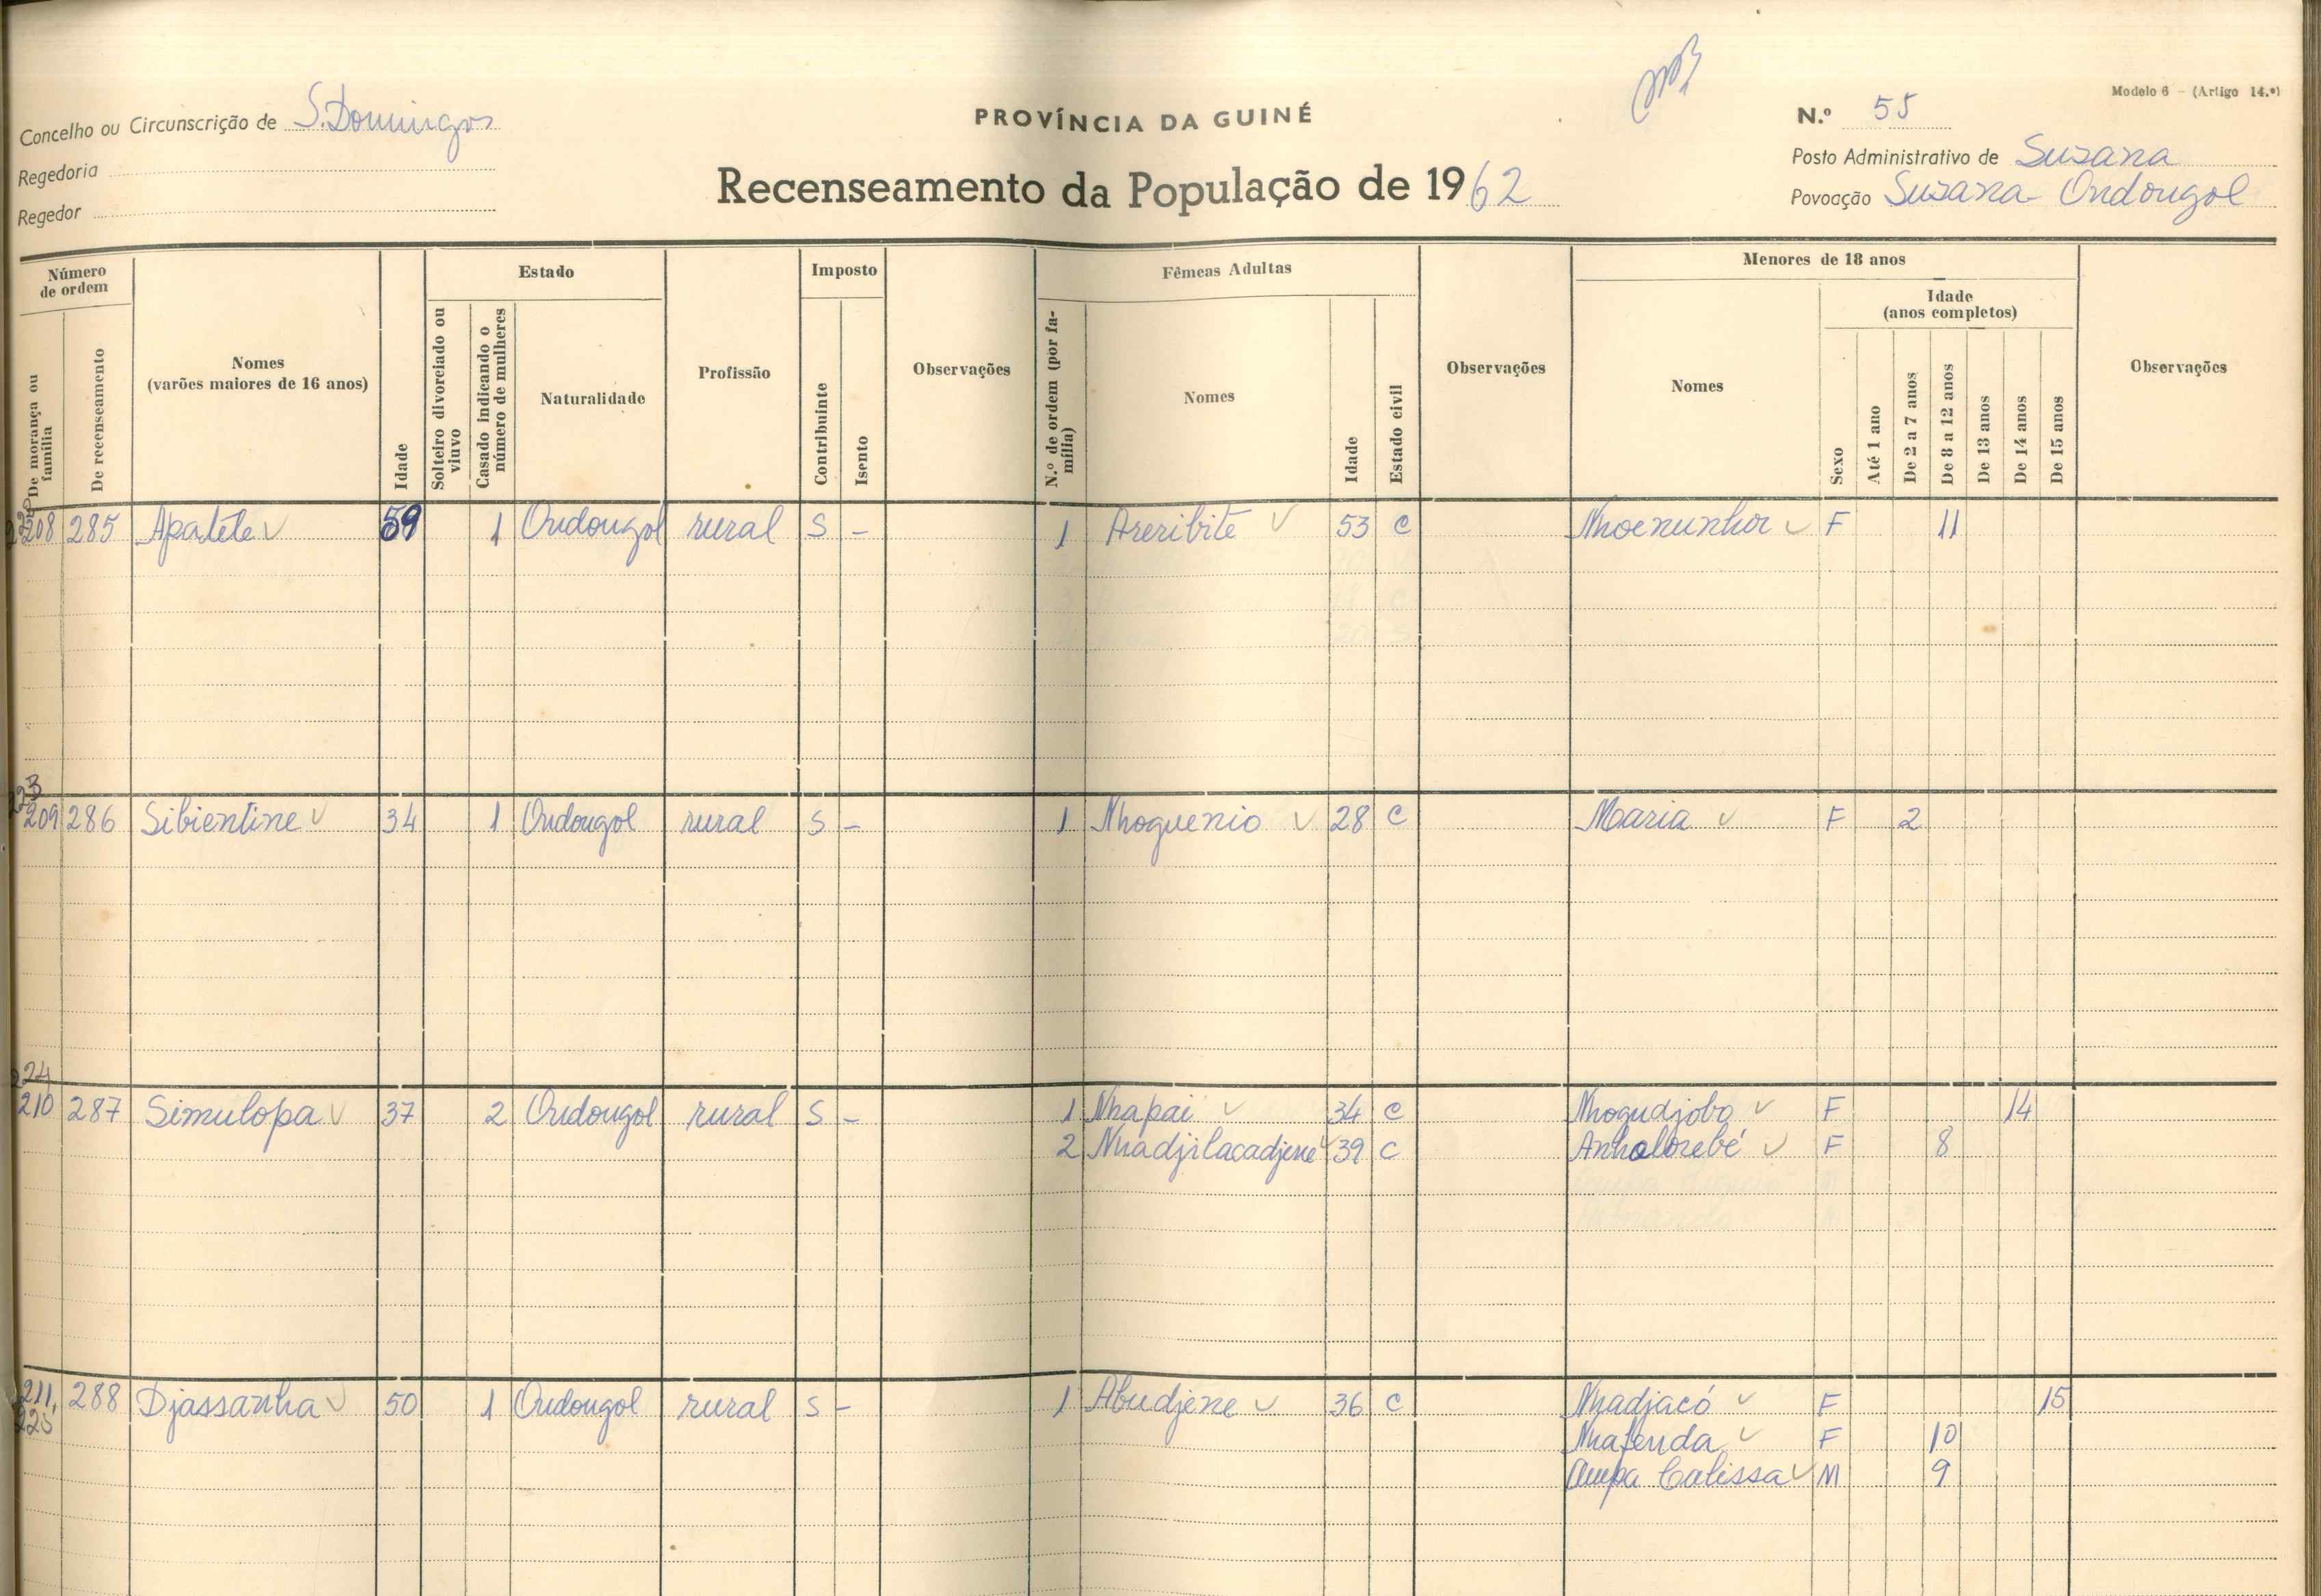 Modelo 6 – (Artigo 14.º)
Concelho ou Circunscrição de S. Domingos
PROVÍNCIA DA GUINÉ
N.º 55
Regedoria
Recenseamento da População de 1962
Posto Administrativo de Susana
Regedor
Povoação Susana Ondougol
Número de ordem
De morança ou família
De recenseamento
Nomes
(varões maiores de 16 anos)
Idade
Estado
Solteiro divorciado ou viuvo
Casado indicando o número de mulheres
Naturalidade
Profissão
Imposto
Contribuinte
Isento
Observações
Fêmeas Adultas
N.º de ordem (por família)
Nomes
Idade
Estado civil
Observações
Menores de 18 anos
Nomes
Sexo
Idade
(anos completos)
Até 1 ano
De 2 a 7 anos
De 8 a 12 anos
De 13 anos
De 14 anos
De 15 anos
Observações
208 285 Apatête 59 1 Ondougol rural S – 1 Areribite 53 C Nhoenunhor F 11
223
209 286 Sibientine 34 1 Ondougol rural S – 1 Nhoguenio 28 C Maria F 2
224
210 287 Simulopa 37 2 Ondougol rural S – 1 Nhapai 34 C Nhogudjobo F 14
2 Nhadjilacadjene 39 C Anhalorebé F 8
211 288 Djassanha 50 1 Ondougol rural S – 1 Abudjene 36 C Nhadjacó F 15
225 Nhafenda F 10
Ampa Calissa M 9